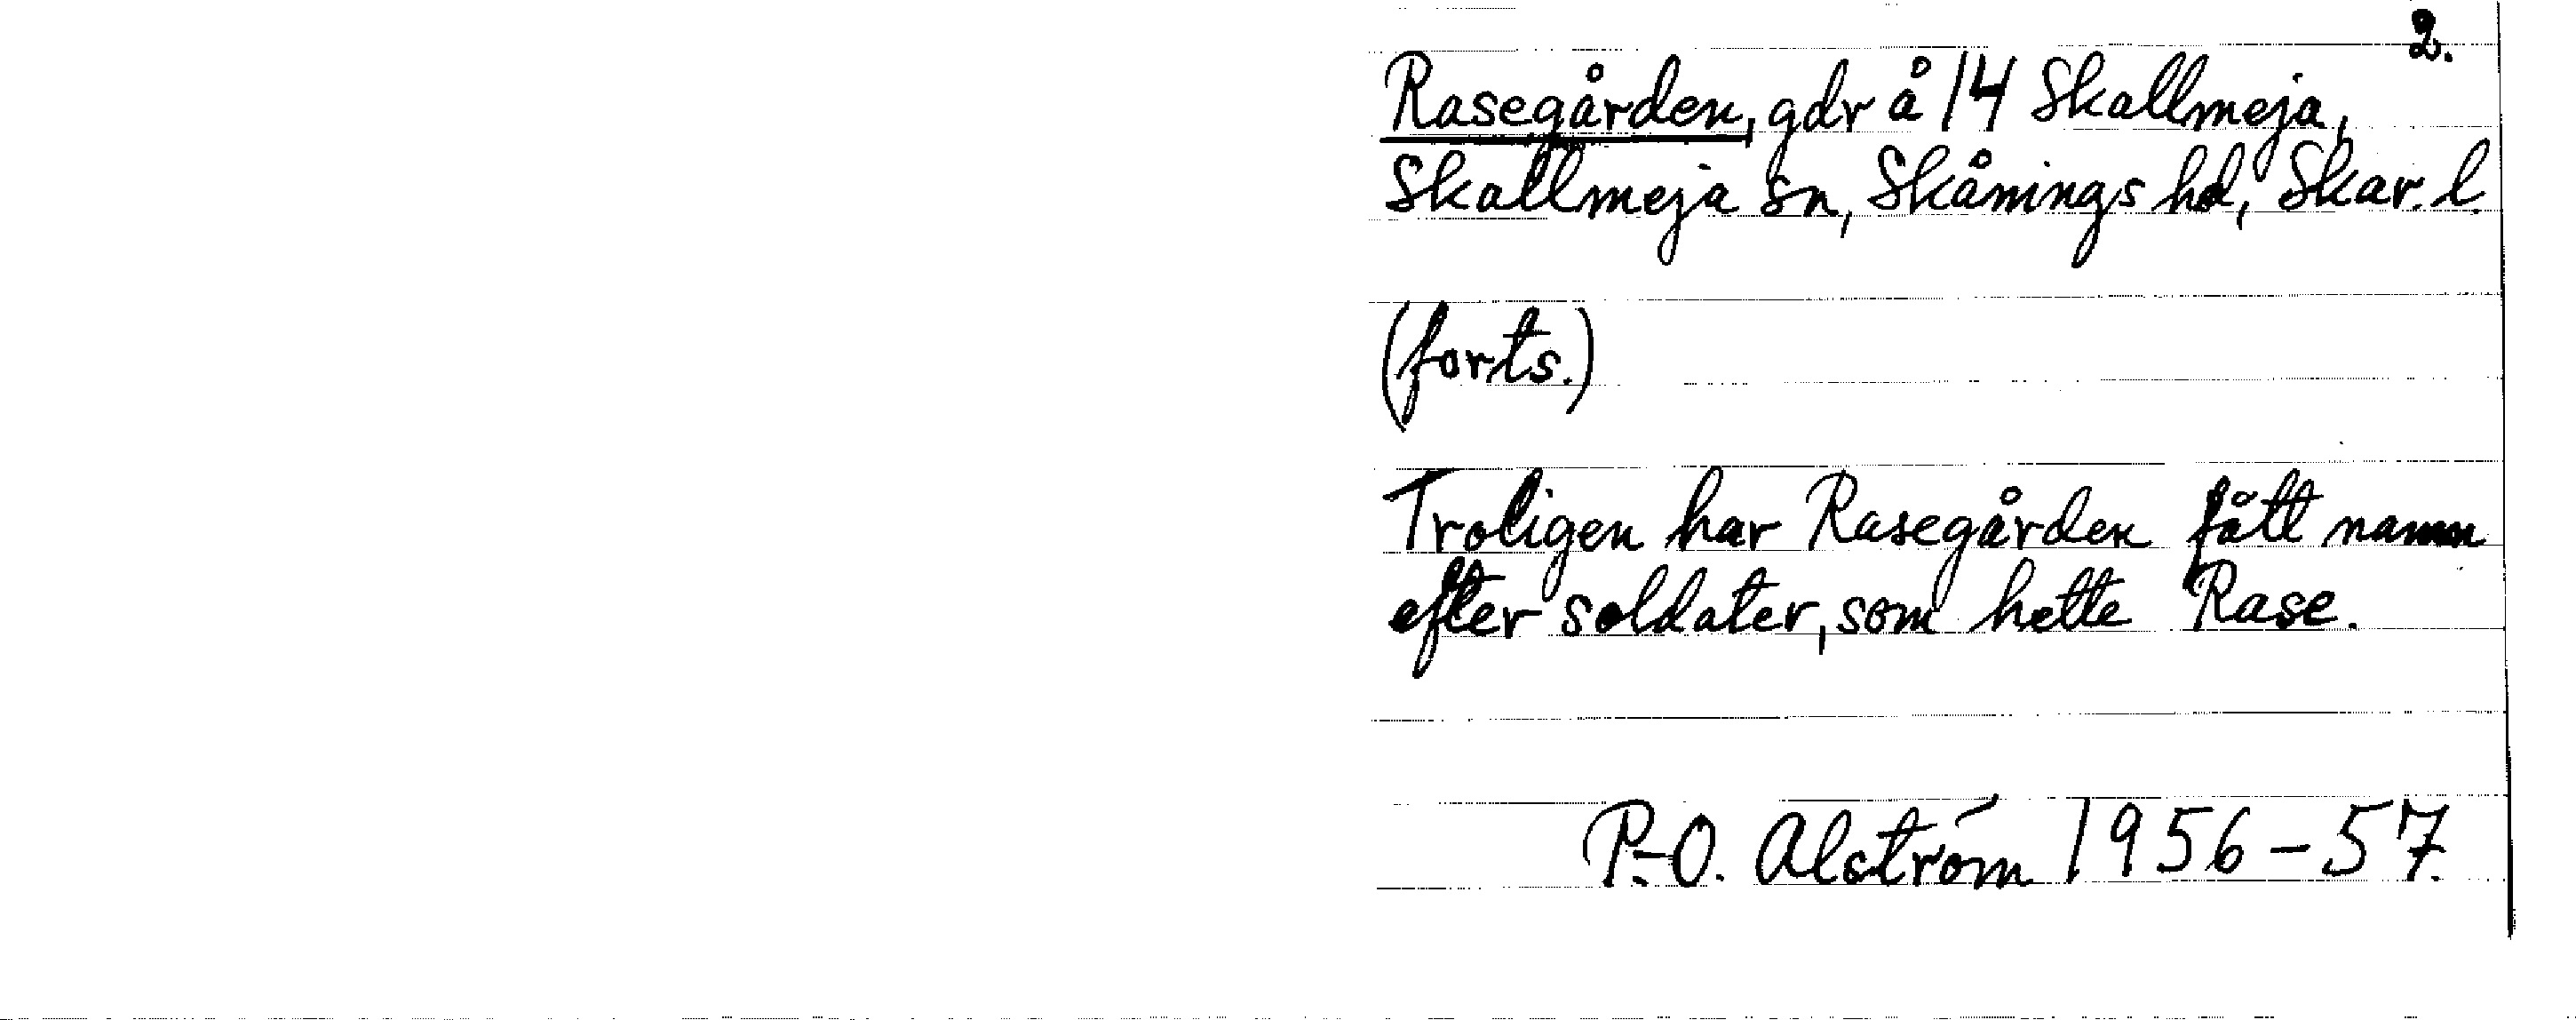 2.
Rasegården, gdr å 14 Skallmeja,
Skallmeja sn, Skånings hd, Skar. l.
(forts.)
Troligen har Rasegården fått namn
efter soldater, som hette Rase.
P.-O. Alström 1956-57.